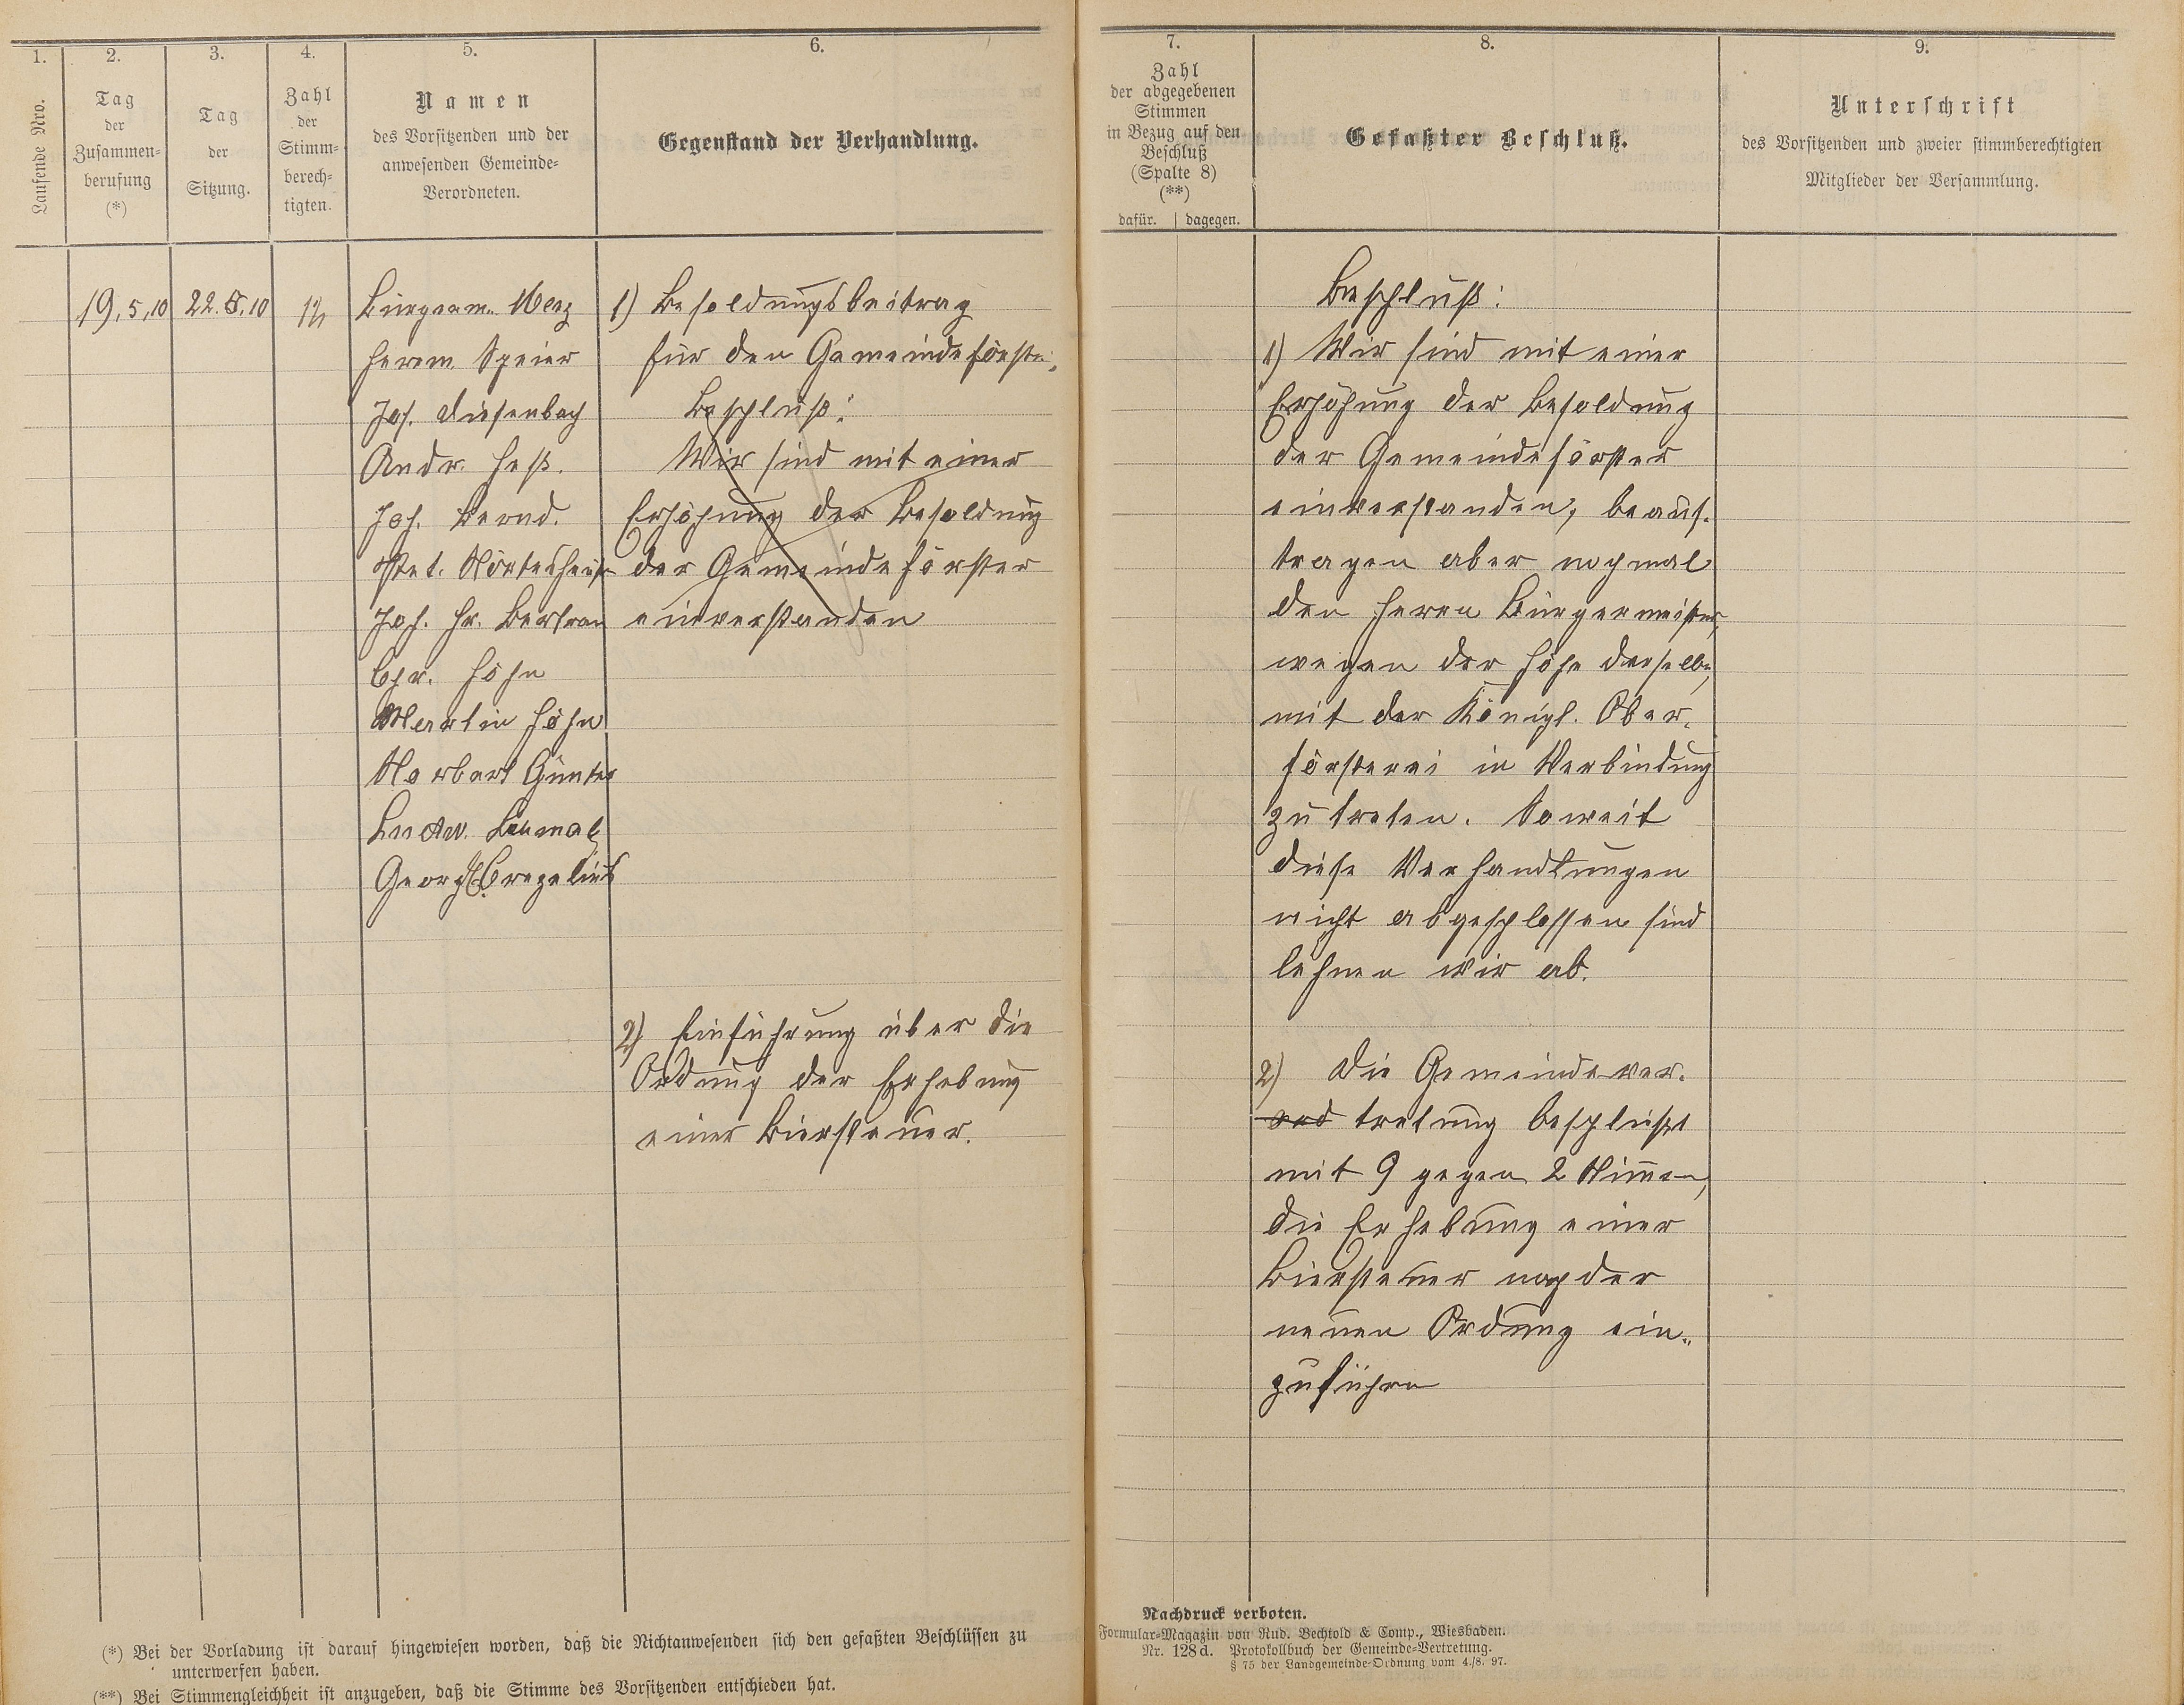 1.
Laufende Nro.
2.
Tag
der
Zusammen-
berufung
(*)
3.
Tag
der
Sitzung.
4.
Zahl
der
Stimm-
berech-
tigten.
5.
Namen
des Vorsitzenden und der
anwesenden Gemeinde-
Verordneten.
6.
Gegenstand der Verhandlung.
19.5.10
22.5.10
Bürgerm. Merz
Herm. Speier
Jos. Diefenbach
Andr. Heß.
Joh. Bernd.
Pet.
Joh. Hr. Bertram
Chr. Höhn
Martin Höhn
Norbert Günter
Ludw.
Georg
1) Besoldungsbeitrag
für den Gemeindeförster.
Beschluß:
Wir sind mit einer
Erhöhung der Besoldung
der Gemeindeförster
einverstanden
2) Einführung über die
Ordnung der Erhebung
einer Biersteuer.
(*) Bei der Vorladung ist darauf hingewiesen worden, daß die Nichtanwesenden sich den gefaßten Beschlüssen zu
unterwerfen haben.
(**) Bei Stimmengleichheit ist anzugeben, daß die Stimme des Vorsitzenden entschieden hat.
7.
Zahl
der abgegebenen
Stimmen
in Bezug auf den
Beschluß
(Spalte 8)
(**)
dafür. | dagegen.
8.
Gefaßter Beschluß.
9.
Unterschrift
des Vorsitzenden und zweier stimmberechtigten
Mitglieder der Versammlung.
Beschluß:
1) Wir sind mit einer
Erhöhung der Besoldung
der Gemeindeförster
einverstanden, beauf-
tragen aber nochmal
den Herrn Bürgermeister,
wegen der Höhe derselben,
mit der Königl. Ober-
försterei in Verbindung
zu treten. Soweit
diese Verhandlungen
nicht abgeschlossen sind
lehnen wir ab.
2) Die Gemeindever-
ord tretung beschließt
mit 9 gegen 2 Stimmen,
die Erhebung einer
Biersteuer nach der
neuen Ordnung ein-
zuführen
Nachdruck verboten.
Formular-Magazin von Rud. Bechtold & Comp., Wiesbaden.
Nr. 128 d. Protokollbuch der Gemeinde-Vertretung.
§ 75 der Landgemeinde-Ordnung vom 4./8. 97.